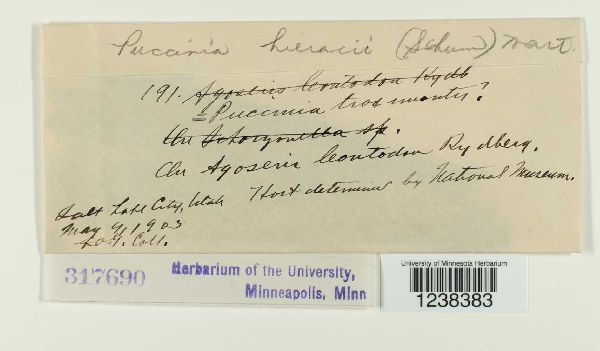 Puccinia hieracii (Schum) Mart.
191. Agoseris leontodon Rydb
= Puccinia troximontis?
On Schorzonella sp.
On Agoseris leontodon Rydberg.
Host determined by National Museum.
Salt Lake City, Utah
May 9, 1903
Coll.
317690
Herbarium of the University,
Minneapolis, Minn
University of Minnesota Herbarium
1238383